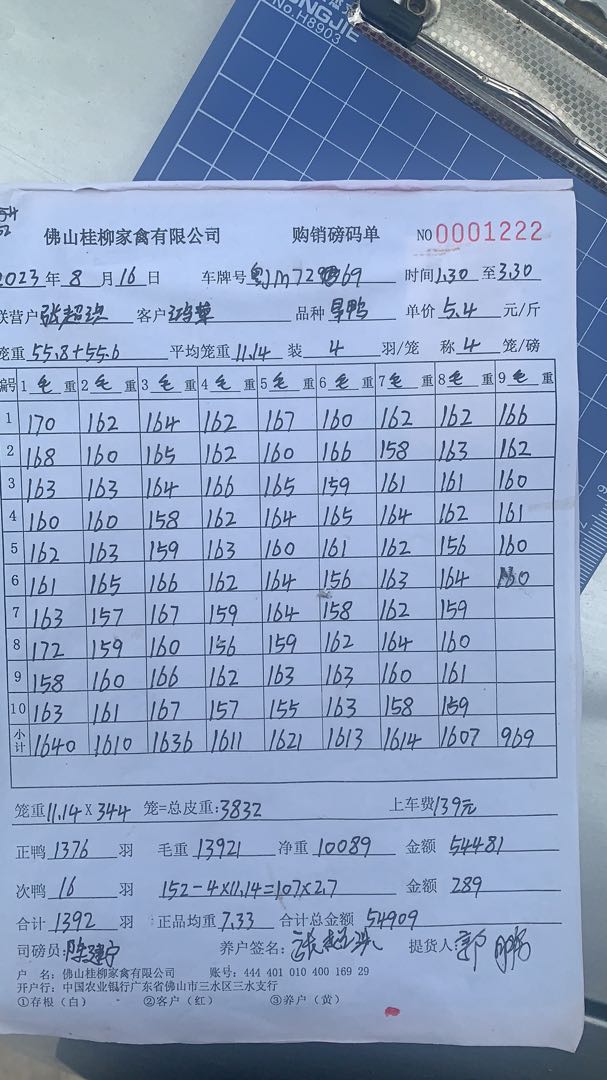 No.H8903
佛山桂柳家禽有限公司 购销磅码单 NO 0001222
2023 年 8 月 16 日 车牌号 时间 1.30 至 3.30
联营户 张超 客户 鸿 品种 旱鸭 单价 5.4 元/斤
笼重 55.8+55.6 平均笼重 11.14 装 4 羽/笼 称 4 笼/磅
编号 1 毛 重 2 毛 重 3 毛 重 4 毛 重 5 毛 重 6 毛 重 7 毛 重 8 毛 重 9 毛 重
1 170 162 164 162 167 160 162 162 166
2 168 160 165 162 160 166 158 163 162
3 163 163 164 166 165 159 161 161 160
4 160 160 158 162 164 165 164 162 161
5 162 163 159 163 160 161 162 156 160
6 161 165 166 162 164 156 163 164 160
7 163 157 167 159 164 158 162 159
8 172 159 160 156 159 162 164 160
9 158 160 166 162 163 163 160 161
10 163 161 167 157 155 163 158 159
小计 1640 1610 1636 1611 1621 1613 1614 1607 969
笼重 11.14 X 344 笼=总皮重: 3832 上车费 139元
正鸭 1376 羽 毛重 13921 净重 10089 金额 54481
次鸭 16 羽 152-4×11.14=107×2.7 金额 289
合计 1392 羽 正品均重 7.33 合计总金额 54909
司磅员: 陈建宁 养户签名: 张超 提货人: 郭
户 名: 佛山桂柳家禽有限公司 账号: 444 401 010 400 169 29
开户行: 中国农业银行广东省佛山市三水区三水支行
①存根（白） ②客户（红） ③养户（黄）